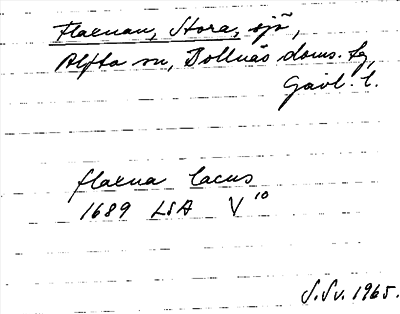 Flaenan, Stora, sjö,
Alfta sn, Bollnäs doms. fg,
Gävl. l.
flaena lacus
1689 LSA V 10
S. Sv. 1965.